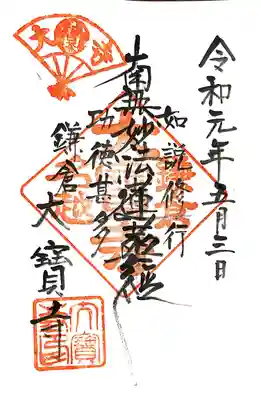 令和元年五月三日
如説修行
南無妙法蓮華経
功徳甚多
鎌倉大寶寺
大寶寺